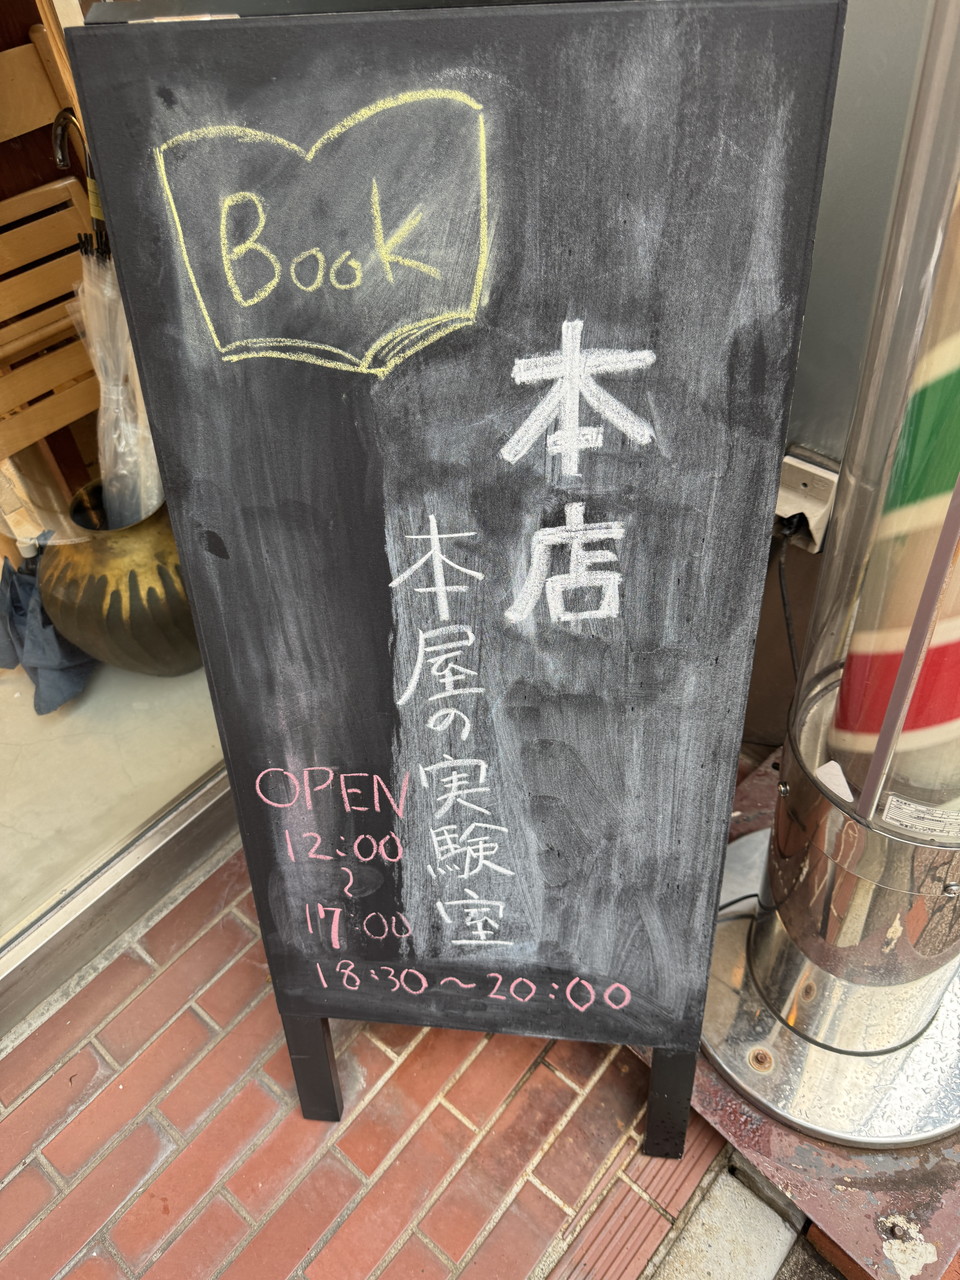 Book
本店
本屋の実験室
OPEN
12:00
〜
17:00
18:30〜20:00